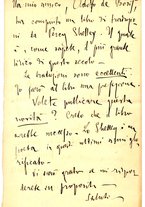 Un mio amico, Adolfo de Bosis,
ha compiuto un libro di traduzio-
ni da Percy Shelley. Il quale
è, come sapete, il più grande
lirico di questo secolo.
Le traduzioni sono eccellenti.
Io farò al libro una prefazione.
Volete pubblicare questa
novità? Credo che il libro a-
vrebbe Lo Shelley
in Italia è un
.
Vi sarò grato se mi rispon-
derete in proposito.
Saluti